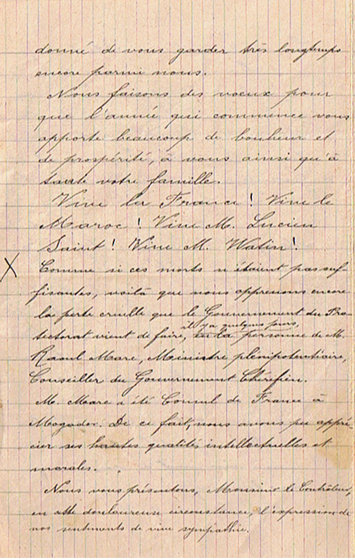 donné de vous garder très longtemps
encore parmi nous.
Nous faisons des vœux pour
que l'année qui commence vous
apporte beaucoup de bonheur et
de prospérité, à vous ainsi qu'à
toute votre famille.
Vive la France ! Vive le
Maroc ! Vive M. Lucien
Saint ! Vive M. Watin !
X Comme si ces morts n'étaient pas suf-
fisantes, voilà que nous apprenons encore
la perte cruelle que le Gouvernement du Pro-
il y a quelques jours,
tectorat vient de faire, en la personne de M.
Raoul Marc, Ministre plénipotentiaire,
Conseiller du Gouvernement Chérifien.
M. Marc a été Consul de France à
Mogador. De ce fait, nous avons pu appré-
cier ses hautes qualités intellectuelles et
morales.
Nous vous présentons, Monsieur le Contrôleur,
en cette douloureuse circonstance, l'expression de
nos sentiments de vive sympathie.